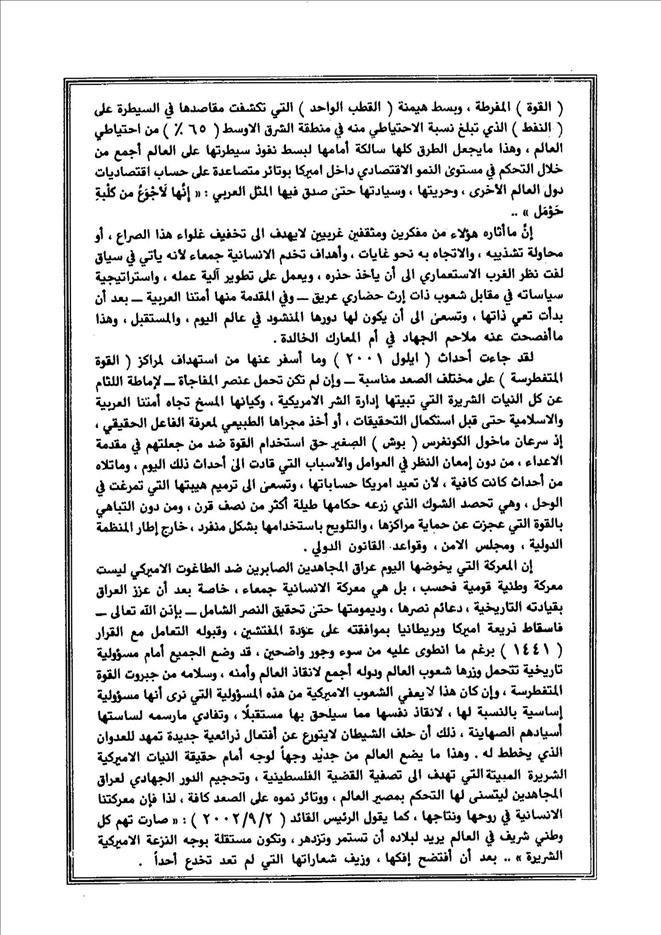 ( القوة ) المفرطة ، وبسط هيمنة ( القطب الواحد ) التي تكشفت مقاصدها في السيطرة على
( النفط ) الذي تبلغ نسبة الاحتياطي منه في منطقة الشرق الاوسط ( ٦٥ ٪ ) من احتياطي
العالم ، وهذا مايجعل الطرق كلها سالكة أمامها لبسط نفوذ سيطرتها على العالم أجمع من
خلال التحكم في مستوى النمو الاقتصادي داخل اميركا بوتائر متصاعدة على حساب اقتصاديات
دول العالم الأخرى ، وحريتها ، وسيادتها حتى صدق فيها المثل العربي : « إنَّها لَأجْوَعُ من كلْبةِ
حَوْمَل » ..
إنَّ ماأثاره هؤلاء من مفكرين ومثقفين غربيين لايهدف الى تخفيف غلواء هذا الصراع ، أو
محاولة تشذيبه ، والاتجاه به نحو غايات ، وأهداف تخدم الانسانية جمعاء لأنه يأتي في سياق
لفت نظر الغرب الاستعماري الى أن يأخذ حذره ، ويعمل على تطوير آلية عمله ، واستراتيجية
سياساته في مقابل شعوب ذات إرث حضاري عريق ــ وفي المقدمة منها أمتنا العربية ــ بعد أن
بدأت تعي ذاتها ، وتسعى الى أن يكون لها دورها المنشود في عالم اليوم ، والمستقبل ، وهذا
ماأفصحت عنه ملاحم الجهاد في أم المعارك الخالدة .
لقد جاءت أحداث ( ايلول ٢٠٠١ ) وما أسفر عنها من استهداف لمراكز ( القوة
المتغطرسة ) على مختلف الصعد مناسبة ــ وإن لم تكن تحمل عنصر المفاجأة ــ لإماطة اللثام
عن كل النيات الشريرة التي تبيتها إدارة الشر الامريكية ، وكيانها المسخ تجاه أمتنا العربية
والاسلامية حتى قبل استكمال التحقيقات ، أو أخذ مجراها الطبيعي لمعرفة الفاعل الحقيقي ،
إذ سرعان ماخول الكونغرس ( بوش ) الصغير حق استخدام القوة ضد من جعلتهم في مقدمة
الاعداء ، من دون إمعان النظر في العوامل والأسباب التي قادت الى أحداث ذلك اليوم ، وماتلاه
من أحداث كانت كافية ، لأن تعيد امريكا حساباتها ، وتسعى الى ترميم هيبتها التي تمرغت في
الوحل ، وهي تحصد الشوك الذي زرعه حكامها طيلة أكثر من نصف قرن ، ومن دون التباهي
بالقوة التي عجزت عن حماية مراكزها ، والتلويح باستخدامها بشكل منفرد ، خارج إطار المنظمة
الدولية ، ومجلس الامن ، وقواعد القانون الدولي .
إن المعركة التي يخوضها اليوم عراق المجاهدين الصابرين ضد الطاغوت الاميركي ليست
معركة وطنية قومية فحسب ، بل هي معركة الانسانية جمعاء ، خاصة بعد أن عزز العراق
بقيادته التاريخية ، دعائم نصرها ، وديمومتها حتى تحقيق النصر الشامل ــ بإذن الله تعالى ــ
فاسقاط ذريعة اميركا وبريطانيا بموافقته على عودة المفتشين ، وقبوله التعامل مع القرار
( ١٤٤١ ) برغم ما انطوى عليه من سوء وجور واضحين ، قد وضع الجميع أمام مسؤولية
تاريخية تتحمل وزرها شعوب العالم ودوله أجمع لانقاذ العالم وأمنه ، وسلامه من جبروت القوة
المتغطرسة ، وإن كان هذا لايعفي الشعوب الاميركية من هذه المسؤولية التي نرى أنها مسؤولية
إساسية بالنسبة لها ، لانقاذ نفسها مما سيلحق بها مستقبلًا ، وتفادي مارسمه لساستها
أسيادهم الصهاينة ، ذلك أن حلف الشيطان لايتورع عن أفتعال ذرائعية جديدة تمهد للعدوان
الذي يخطط له . وهذا ما يضع العالم من جديد وجهاً لوجه أمام حقيقة النيات الاميركية
الشريرة المبيتة التي تهدف الى تصفية القضية الفلسطينية ، وتحجيم الدور الجهادي لعراق
المجاهدين ليتسنى لها التحكم بمصير العالم ، ووتائر نموه على الصعد كافة ، لذا فإن معركتنا
الانسانية في روحها ونتاجها ، كما يقول الرئيس القائد ( ٢٠٠٢/٩/٢ ) : « صارت تهم كل
وطني شريف في العالم يريد لبلاده أن تستمر وتزدهر ، وتكون مستقلة بوجه النزعة الاميركية
الشريرة » .. بعد أن أفتضح إفكها ، وزيف شعاراتها التي لم تعد تخدع أحداً .